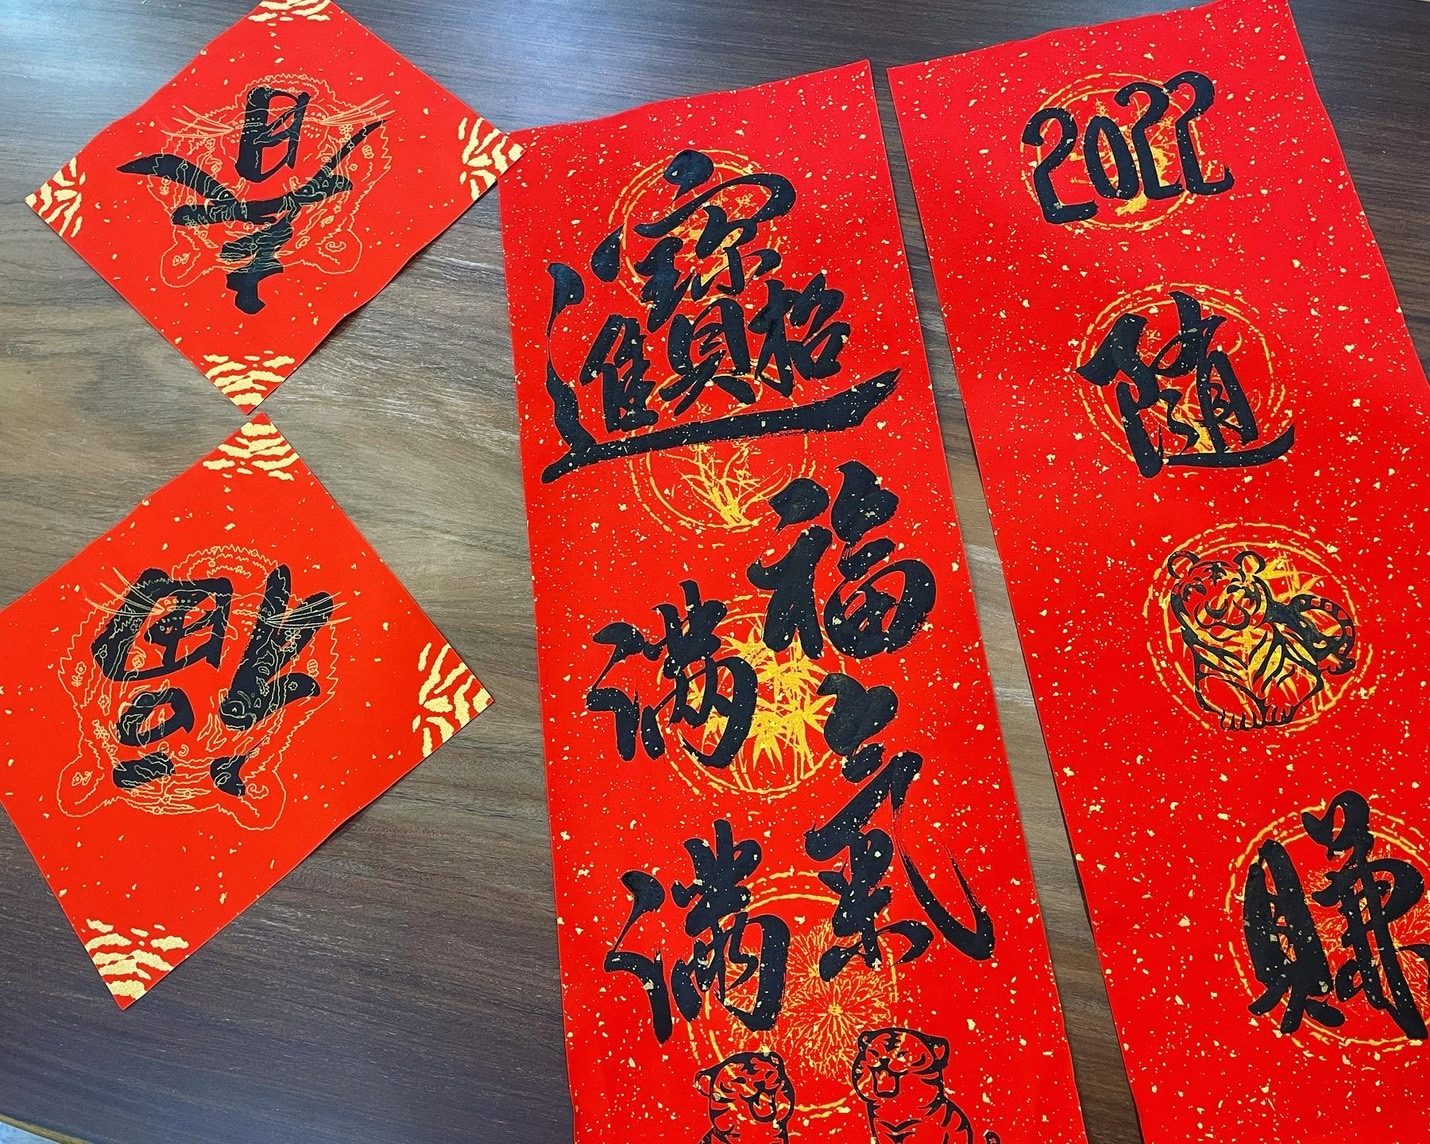 春
福
招財進寶
福氣
滿滿
2022
隨
賺